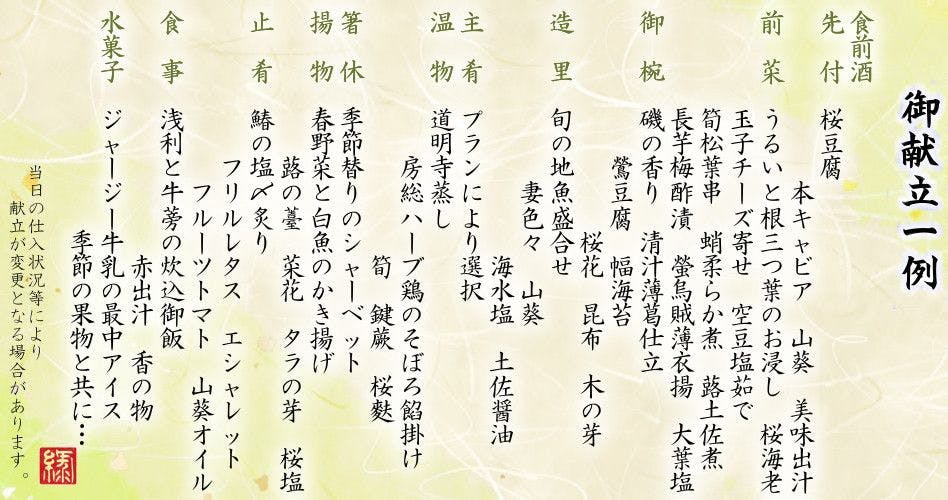 御献立一例
食前酒
先付 桜豆腐
本キャビア 山葵 美味出汁
前菜 うるいと根三つ葉のお浸し 桜海老
玉子チーズ寄せ 空豆塩茹で
筍松葉串 蛸柔らか煮 蕗土佐煮
長芋梅酢漬 螢烏賊薄衣揚 大葉塩
御椀 磯の香り 清汁薄葛仕立
鶯豆腐 幅海苔
桜花 昆布 木の芽
造里 旬の地魚盛合せ
妻色々 山葵
海水塩 土佐醤油
主肴 プランにより選択
温物 道明寺蒸し
房総ハーブ鶏のそぼろ餡掛け
筍 鍵蕨 桜麩
箸休 季節替りのシャーベット
揚物 春野菜と白魚のかき揚げ
蕗の薹 菜花 タラの芽 桜塩
止肴 鰆の塩〆炙り
フリルレタス エシャレット
フルーツトマト 山葵オイル
食事 浅利と牛蒡の炊込御飯
赤出汁 香の物
水菓子 ジャージー牛乳の最中アイス
季節の果物と共に…
当日の仕入状況等により
献立が変更となる場合があります。